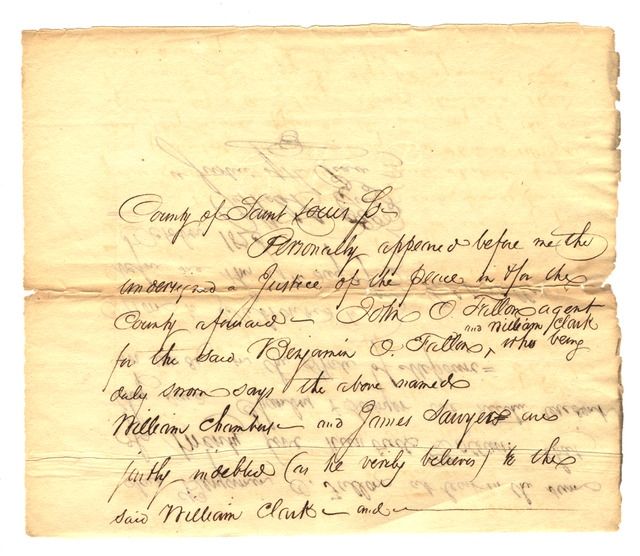 County of Saint Louis Ss
Personally appeared before me the
undersigned a Justice of the Peace in & for the
County aforesaid John O. Fallon agent
and William Clark
for the said Benjamin O. Fallon, who being
duly sworn says the above named
William Chambers and James Sawyers are
justly indebted (as he verily believes) to the
said William Clark and